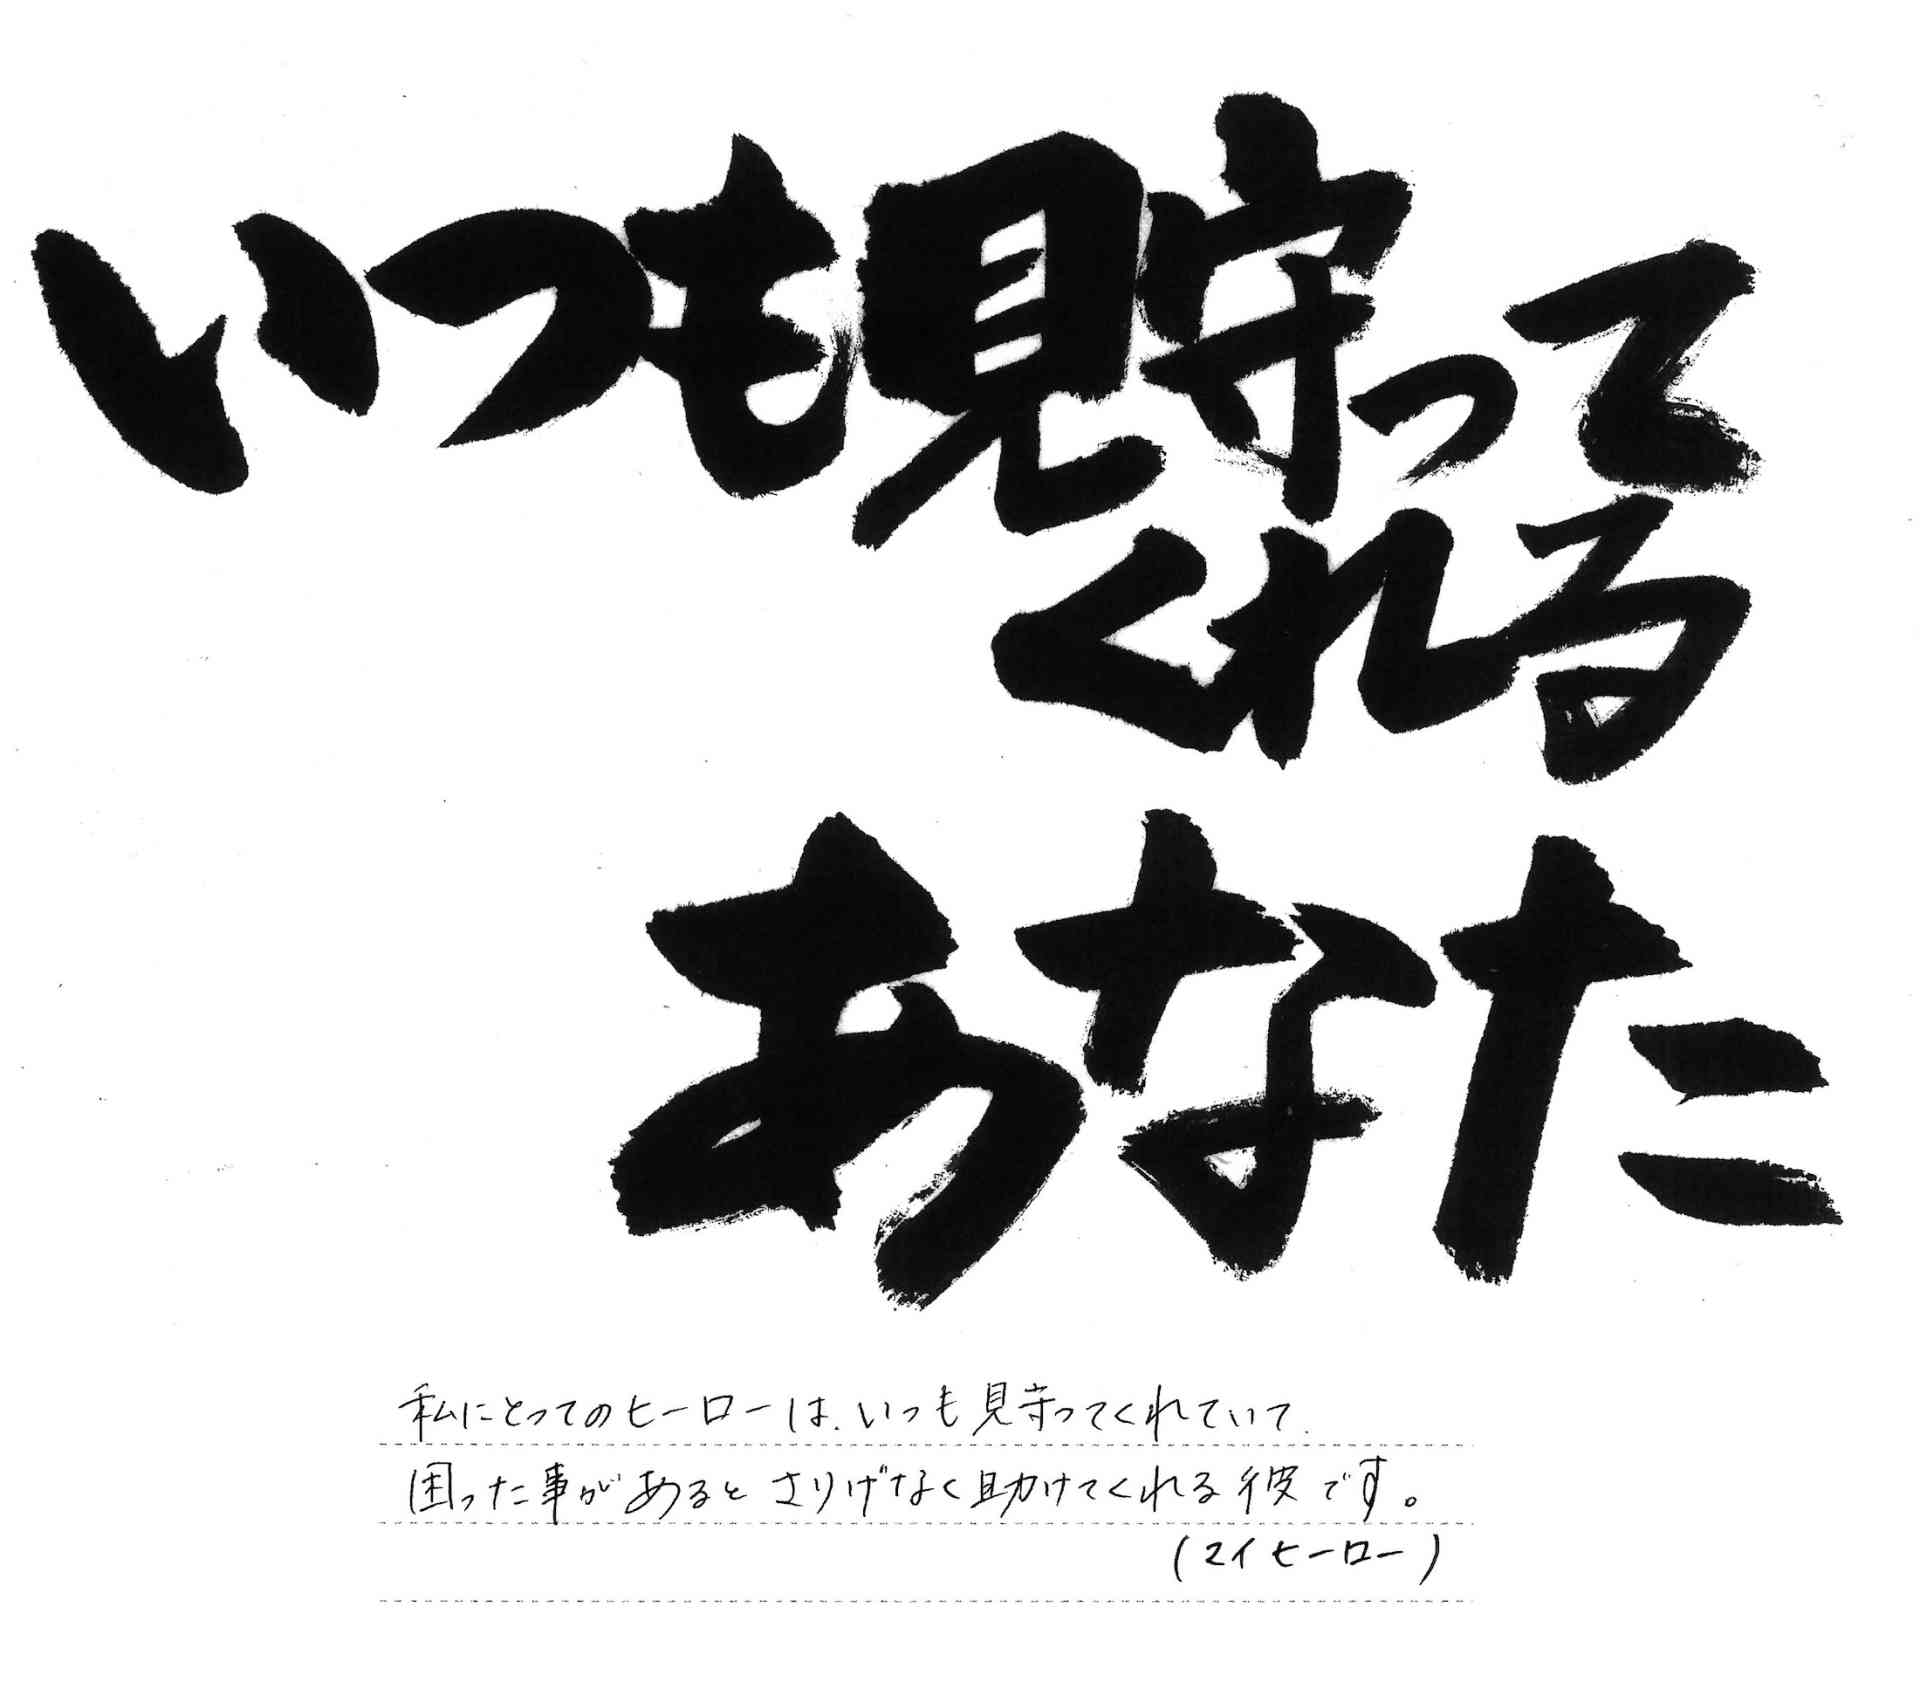 いつも見守って
くれる
あなた
私にとってのヒーローは、いつも見守ってくれていて、
困った事があるとさりげなく助けてくれる彼です。
(マイヒーロー)